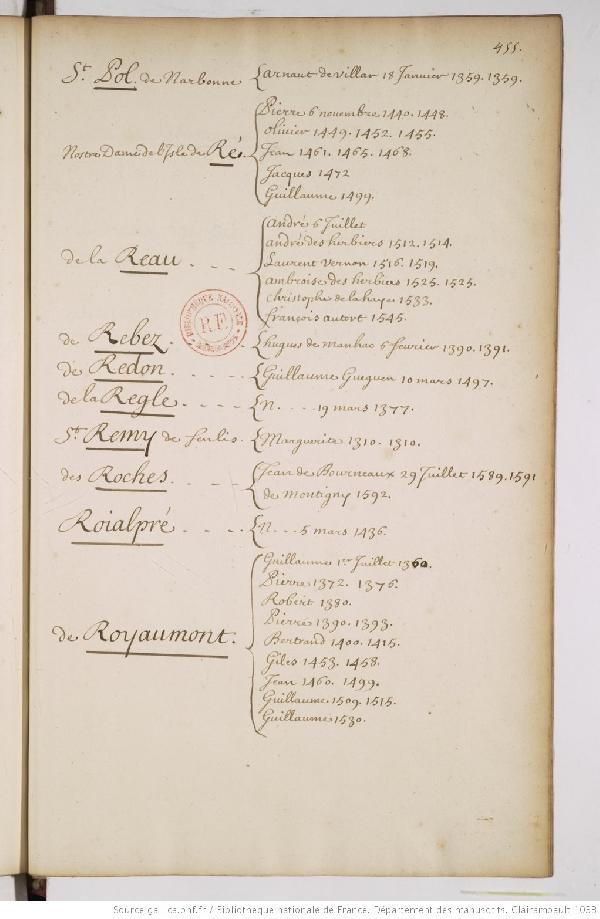 455.
St. Pol. de Narbonne { arnaut de villar 18 Janvier 1359. 1359.
Pierre 6 novembre 1440. 1448.
olivier 1449. 1452. 1455.
Nostre Dame de l'Isle de Ré. { Jean 1461. 1465. 1468.
Jacques 1472
Guillaume 1499.
andré 6 Juillet
andré des herbiers 1512. 1514.
de la Reau . . . { Laurent vernon 1516. 1519.
ambroise des herbiers 1525. 1525.
christophe de la haye 1533.
françois autort 1545.
R.F.
de Rebez . { hugues de manhac 6 fevrier 1390. 1391.
de Redon . . . { Guillaume Gueguen 10 mars 1497.
de la Regle . . . . { N. . . . 19 mars 1377.
St. Remy de senlis . { Marguerite 1310. 1310.
des Roches . . . . { Jean de Bourneaux 29 Juillet 1589. 1591
de Montigny 1592.
Roialpré . . . . { N. . . 5 mars 1436.
Guillaume 1er Juillet 1360.
Pierre 1372. 1376.
Robert 1380.
Pierre 1390. 1393.
de Royaumont. { Bertrand 1400. 1415.
Giles 1453. 1458.
Jean 1460. 1499.
Guillaume 1509. 1515.
Guillaume 1530.
Source gallica.bnf.fr / Bibliothèque nationale de France. Département des manuscrits. Clairambault 1033